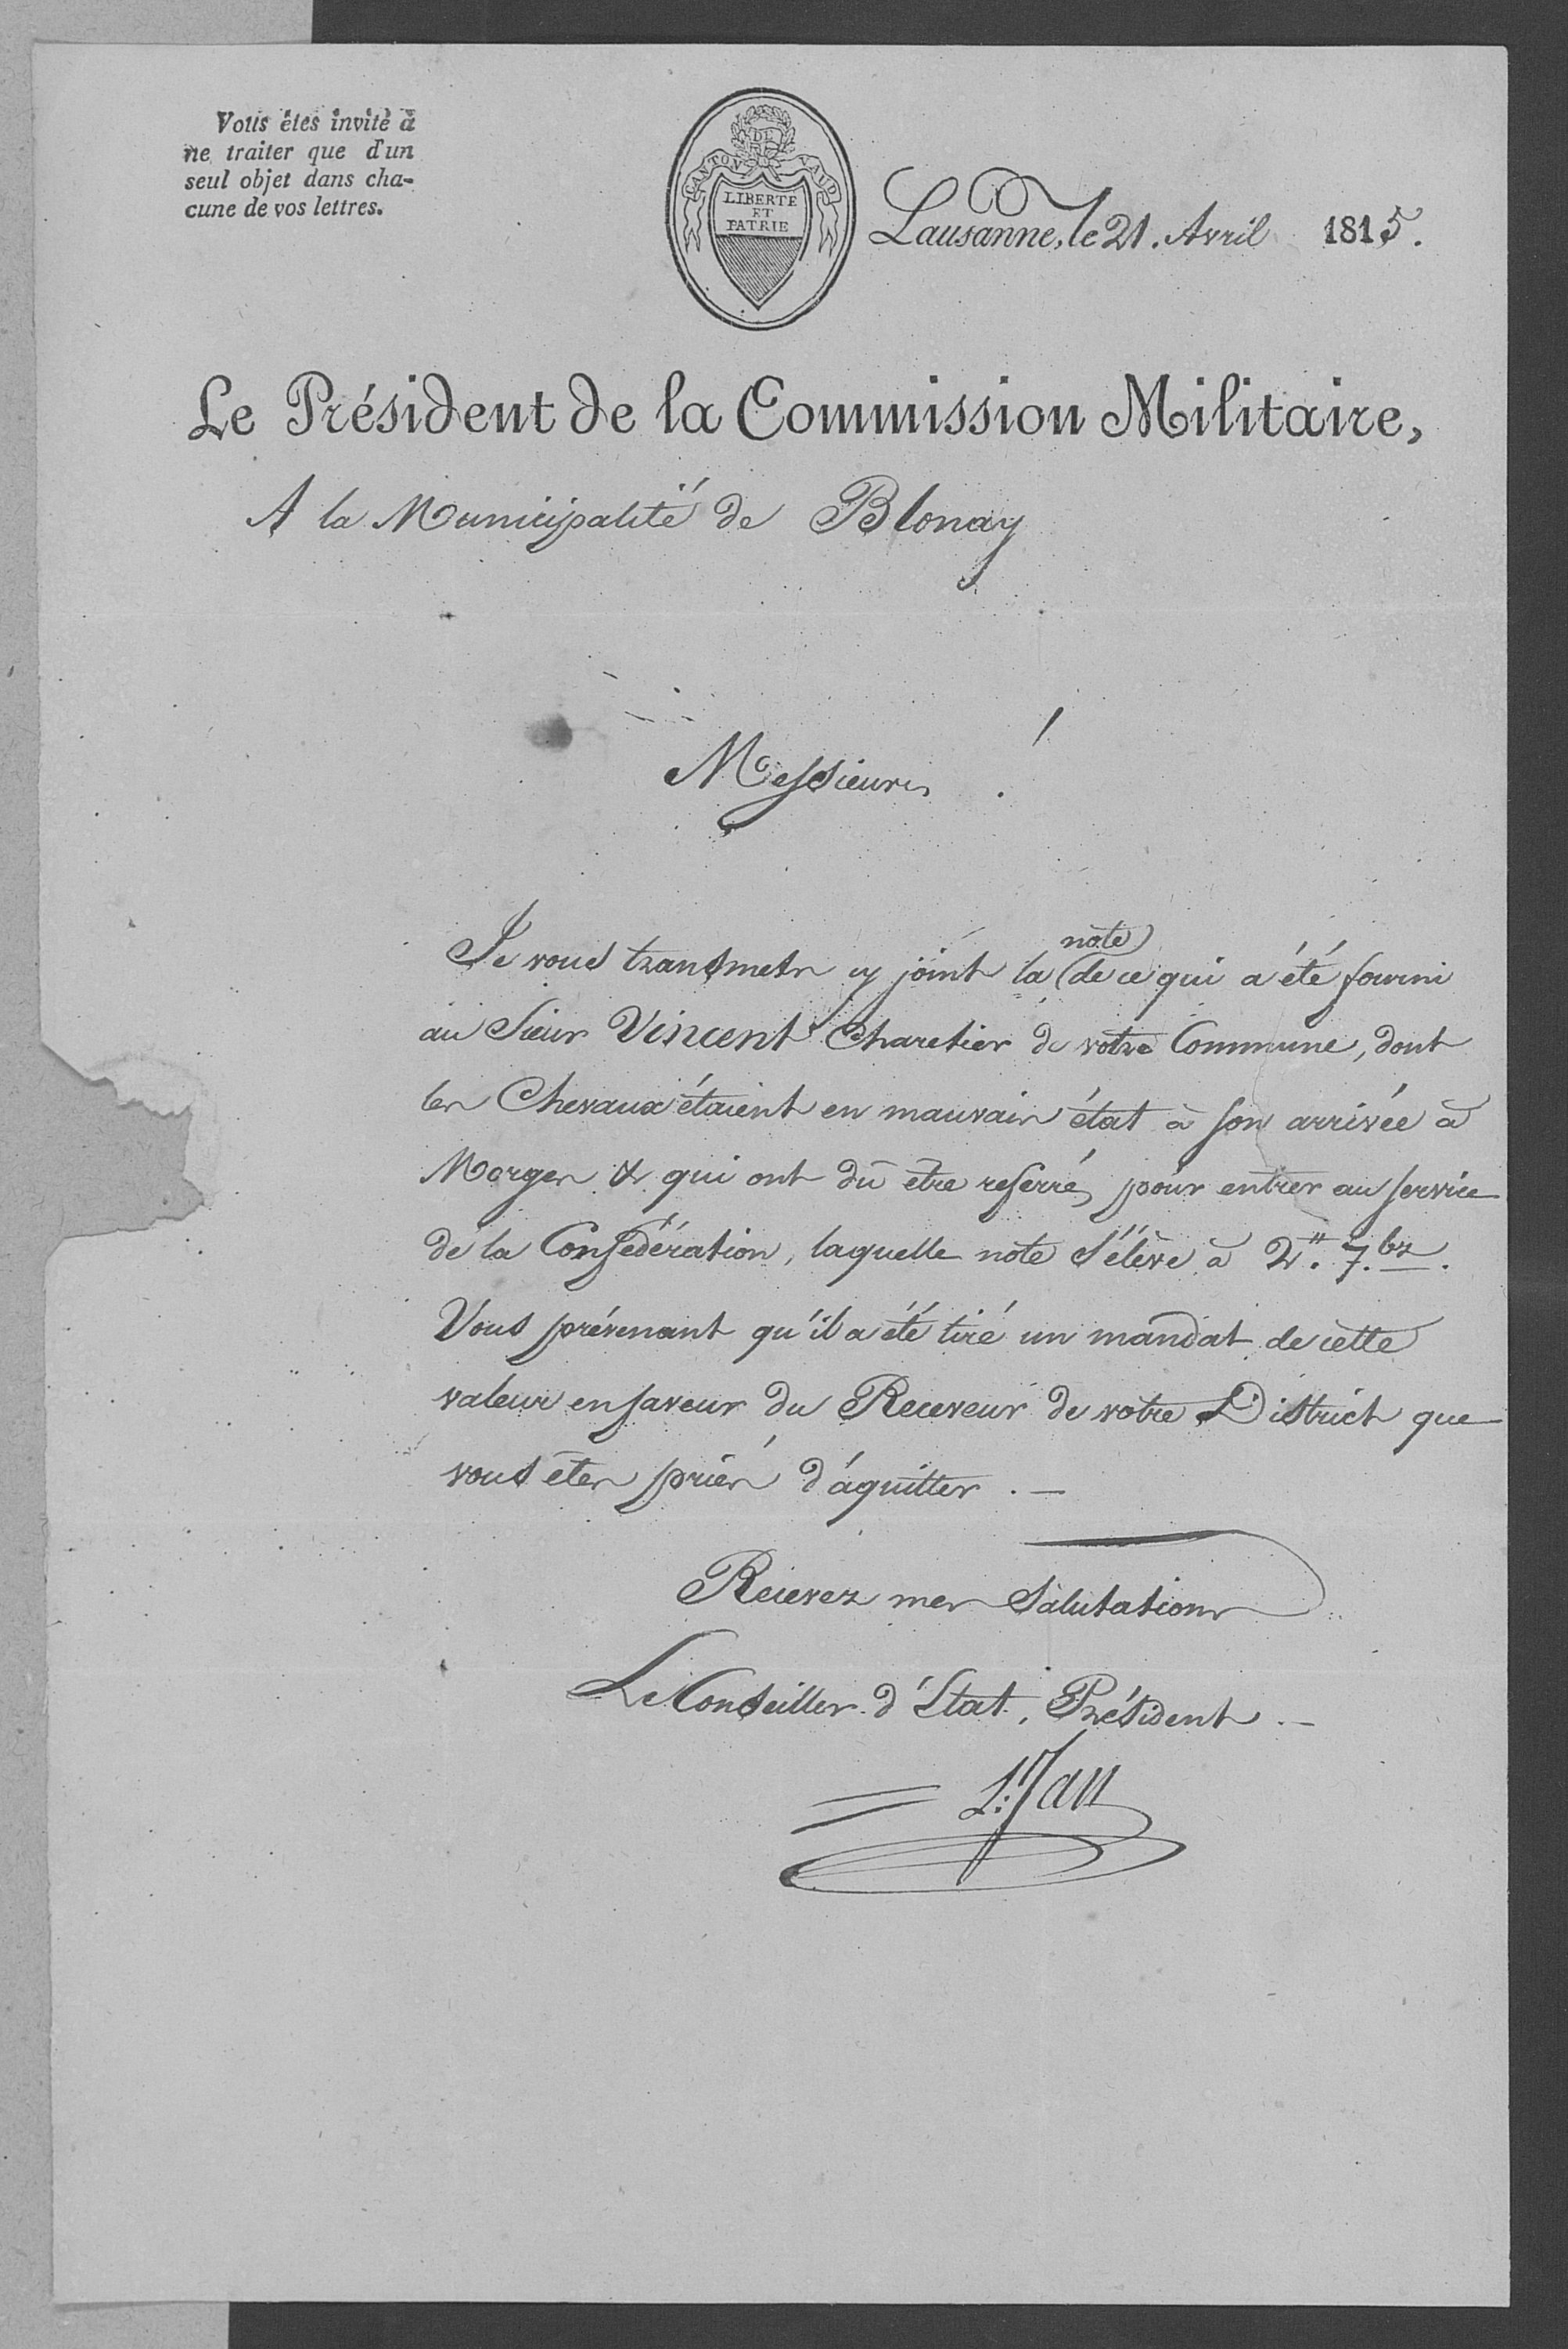 Vous êtes invité à
ne traiter que d'un
seul objet dans cha-
cune de vos lettres.
CANTON DE VAUD
LIBERTE
ET
PATRIE
Lausanne, le 21. Avril 1815.
Le Président de la Commission Militaire,
A la Municipalité de Blonay
Messieurs !
note
Je vous transmets cy joint la (de ce qui a été fourni
au Sieur Vincent Charetier de votre Commune, dont
les Chevaux étaient en mauvais état à son arrivée à
Morges & qui ont dû être referrés pour entrer au service
de la Confédération, laquelle note s'élève à 2.″ 7. bz.
Vous prévenant qu'il a été tiré un mandat de cette
valeur en faveur du Receveur de votre District que
vous êtes priés d'aquitter. —
Recevez mes Salutations
Le Conseiller d'Etat, Président. —